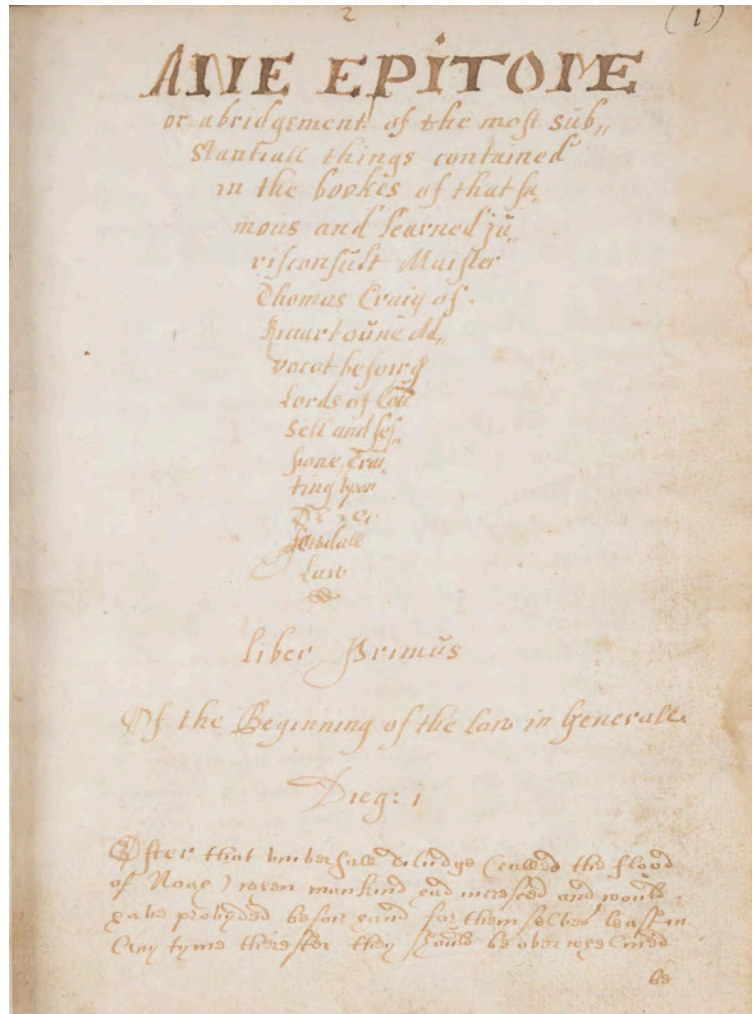 2
(1)
ANE EPITOME
or abridgement of the most sub„
stantiall things contained
in the bookes of that fa„
mous and learned ju„
risconsult Maister
Thomas Craig of
Riccartoune Ad„
vocat befoir ye
Lords of Coū
sell and ses„
sione Trai„
ting upon
fewdall
Law
liber Primus
Of the Beginning of the law in Generall.
Dieg: 1
After that universall deludge (called the flood
of Noah) when mankind had incresced and would
have provyded befoir hand for themselves leass in
any tyme therefter they should be overwhelmed
be